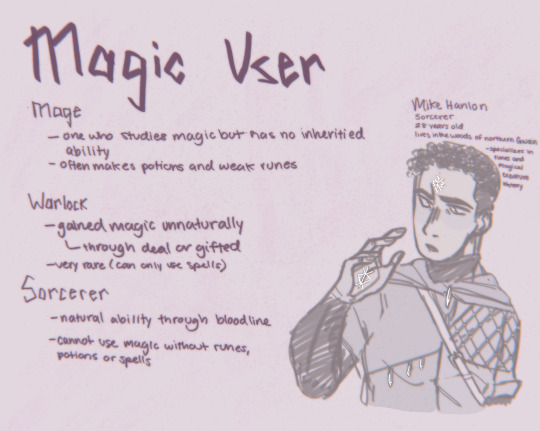 Magic User
Mage
- one who studies magic but has no inheritied
ability
- often makes potions and weak runes
Warlock
- gained magic unnaturally
↳ through deal or gifted
- very rare (can only use spells)
Sorcerer
- natural ability through bloodline
- cannot use magic without runes,
potions or spells
Mike Hanlon
Sorcerer
28 years old
lives in the woods of northern
- specializes in
runes and
magical
creature
theory